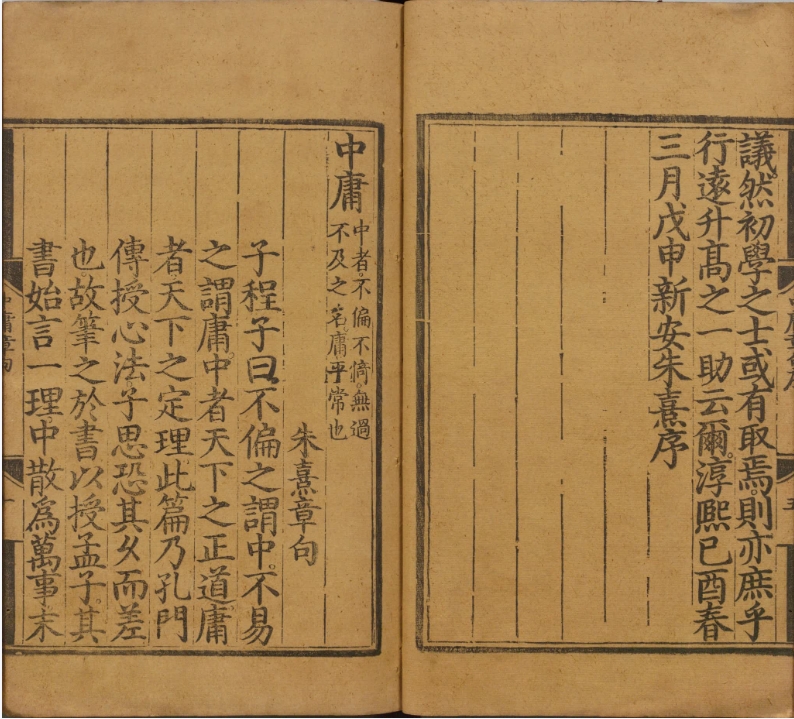 議然初學之士或有取焉則亦庶乎
行遠升高之一助云爾淳熙己酉春
三月戊申新安朱熹序
中庸
中者不偏不倚無過
不及之名庸平常也
朱熹章句
子程子曰不偏之謂中不易
之謂庸中者天下之正道庸
者天下之定理此篇乃孔門
傳授心法子思恐其久而差
也故筆之於書以授孟子其
書始言一理中散爲萬事末